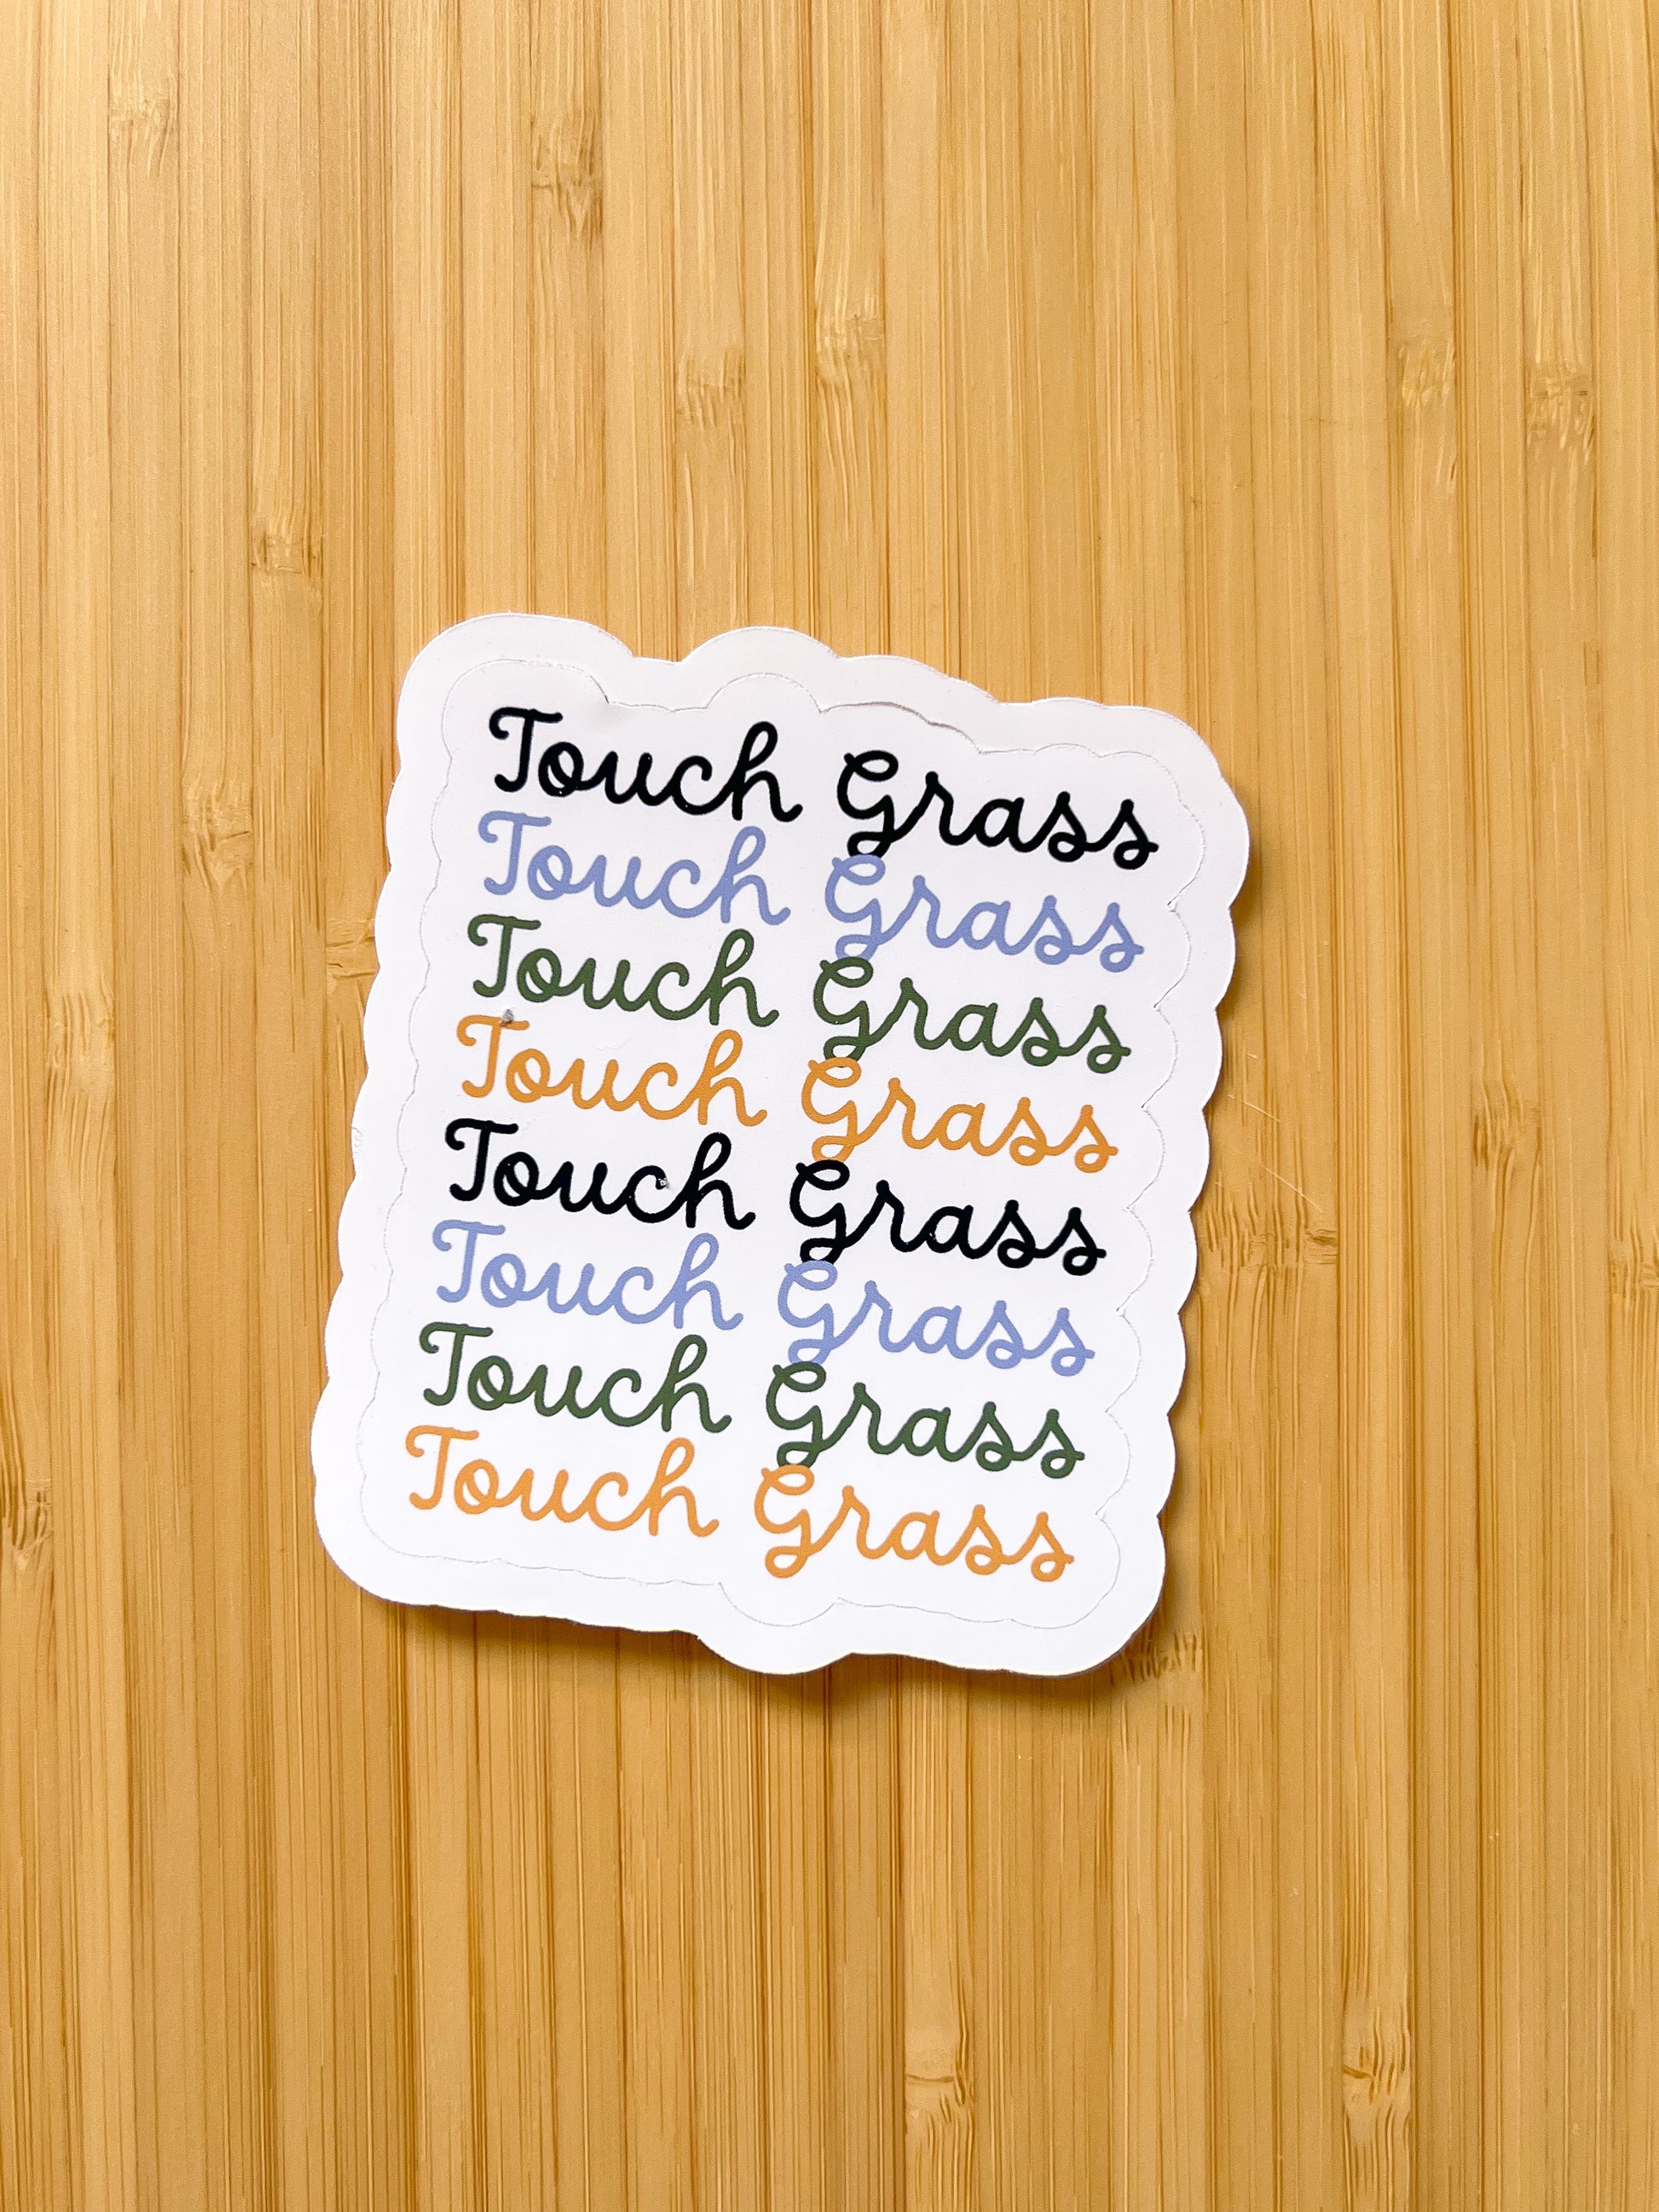 Touch Grass
Touch Grass
Touch Grass
Touch Grass
Touch Grass
Touch Grass
Touch Grass
Touch Grass